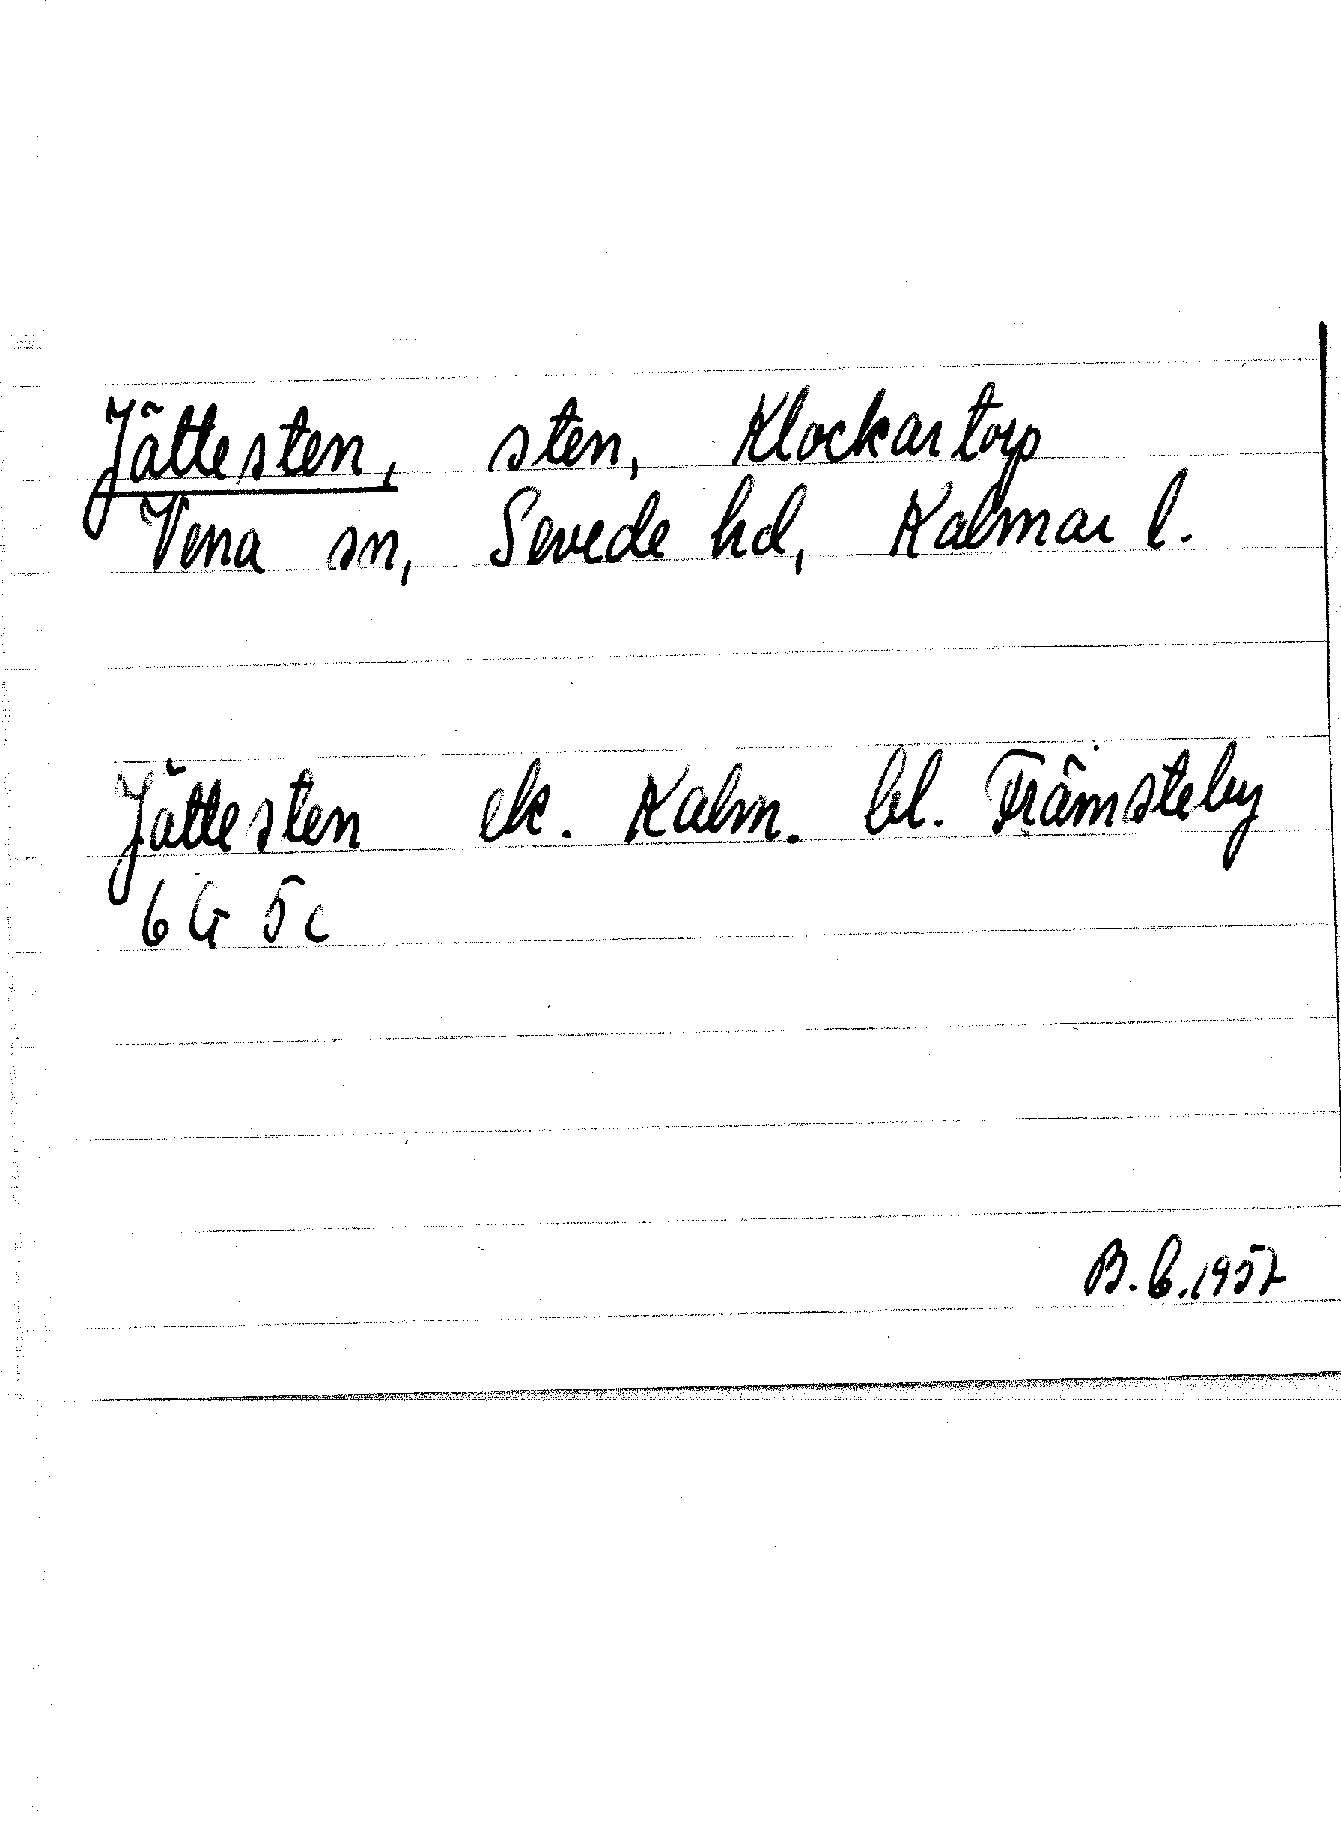 Jättesten, sten, Klockartorp
Vena sn, Sevede hd, Kalmar l.
Jättesten ek. Kalm. bl. Främsteby
6 G 5 c
B.E.1952